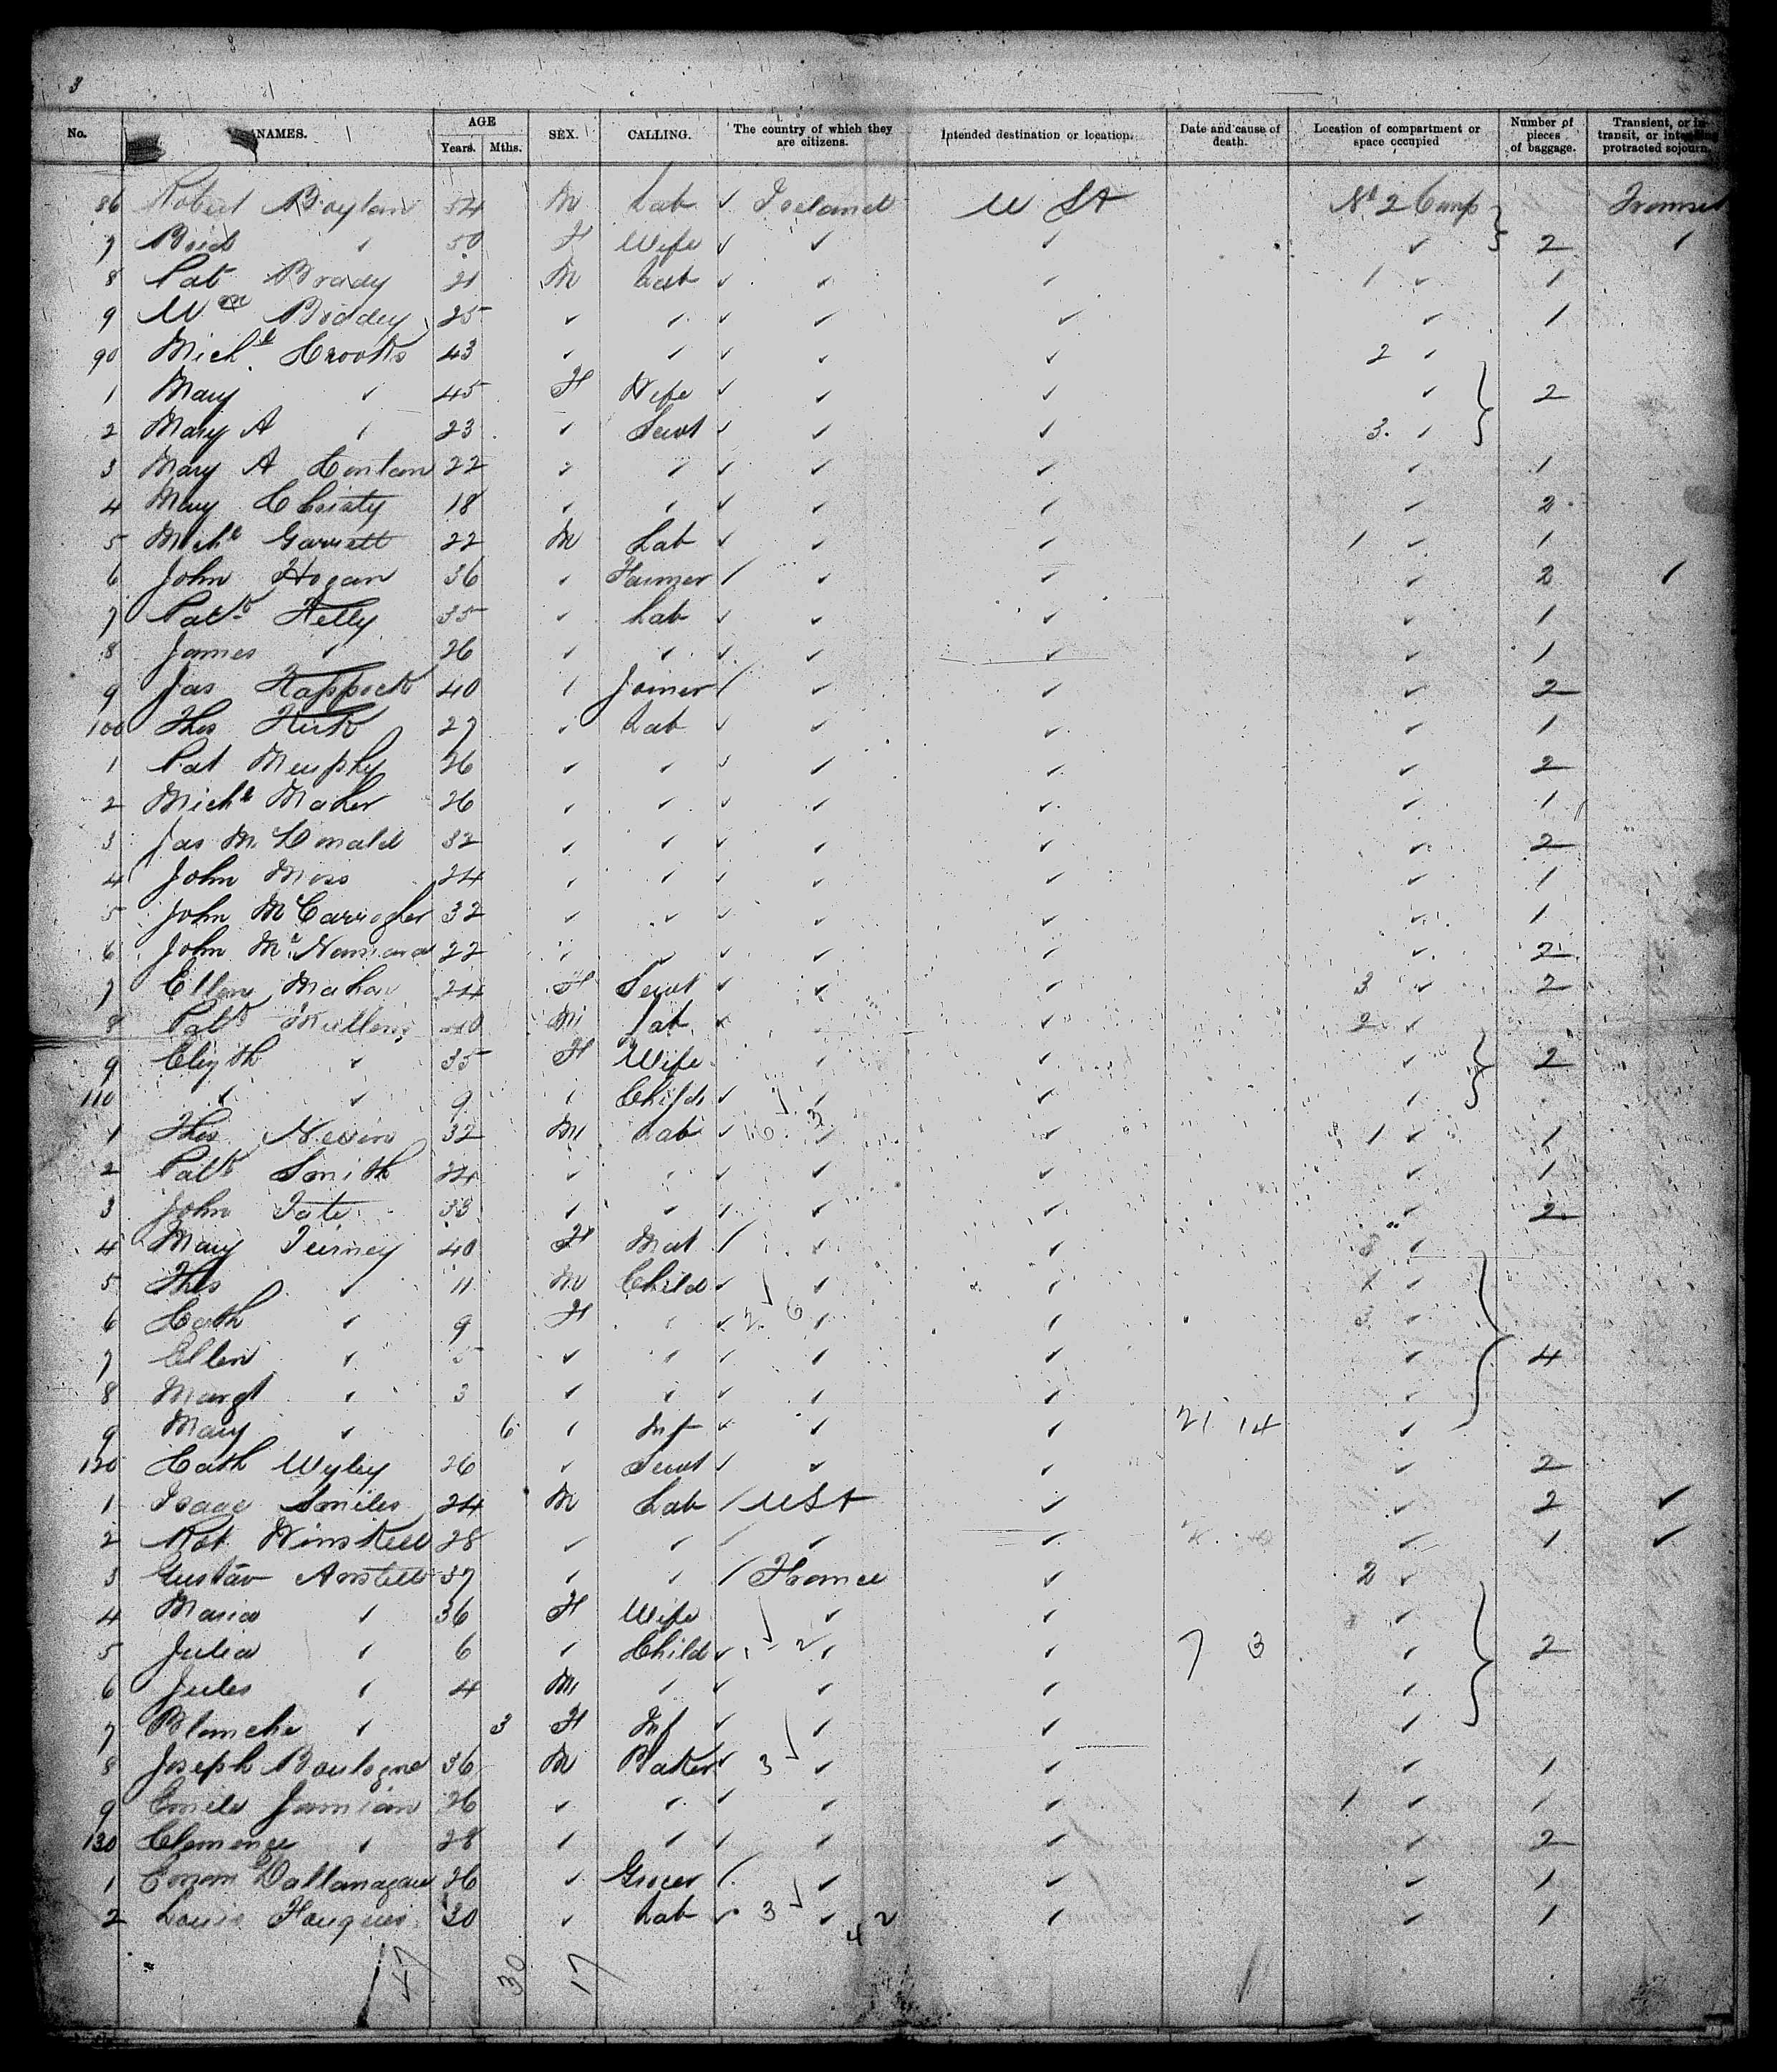 3
No. NAMES. AGE Years. Mths. SEX. CALLING. The country of which they are citizens. Intended destination or location. Date and cause of death. Location of compartment or space occupied Number of pieces of baggage. Transient, or in transit, or intending protracted sojourn.
86 Robert Boylan 54 M Lab ✓ Ireland U St No 2 Comp
7 ✓ 50 F Wife ✓ ✓ ✓ ✓ 2 ✓
8 Pat Brady 21 M ✓ ✓ ✓ 1 ✓ 1
9 Wm 25 ✓ ✓ ✓ ✓ ✓ ✓ 1
90 Michl Crooks 43 ✓ ✓ ✓ ✓ ✓ 2 ✓
1 Mary ✓ 45 F Wife ✓ ✓ ✓ ✓ 2
2 Mary A ✓ 23 ✓ Servt ✓ ✓ ✓ 3 ✓
3 Mary A Conlan 22 ✓ ✓ ✓ ✓ ✓ ✓ 1
4 Mary Christy 18 ✓ ✓ ✓ ✓ ✓ ✓ 2
5 Michl Garrett 22 M Lab ✓ ✓ ✓ 1 ✓ 1
6 John Hogan 36 ✓ Farmer / ✓ ✓ ✓ 2 ✓
7 Patk Kelly 35 ✓ Lab ✓ ✓ ✓ ✓ 1
8 James ✓ 26 ✓ ✓ ✓ ✓ ✓ ✓ 1
9 Jas Kappock 40 ✓ Joiner / ✓ ✓ ✓ 2
100 Thos Kirk 27 ✓ Lab ✓ ✓ ✓ ✓ 1
1 Pat Murphy 26 ✓ ✓ ✓ ✓ ✓ ✓ 2
2 Michl Maher 26 ✓ ✓ ✓ ✓ ✓ ✓ 1
3 Jas McDonald 32 ✓ ✓ ✓ ✓ ✓ ✓ 2
4 John Moss 24 ✓ ✓ ✓ ✓ ✓ ✓ 1
5 John 32 ✓ ✓ ✓ ✓ ✓ ✓ 1
6 John McNamara 22 ✓ ✓ ✓ ✓ ✓ ✓ 2
7 Ellen Mahar 24 F Servt ✓ ✓ ✓ 3 ✓ 2
8 Patk Mullens 40 M Lab ✓ ✓ ✓ 2 ✓
9 Elizth ✓ 35 F Wife ✓ ✓ ✓ 2
110 ✓ ✓ 9 ✓ Child ✓ ✓ ✓ ✓
1 Thos Nevin 32 M Lab ✓ ✓ ✓ 1 ✓ 1
2 Patk Smith 24 ✓ ✓ ✓ ✓ ✓ ✓ 1
3 John Tate 33 ✓ ✓ ✓ ✓ ✓ ✓ 2
4 Mary Tierney 40 F Mat / ✓ ✓ 3 ✓
5 Thos ✓ 11 M Child ✓ ✓ ✓ 1 ✓
6 Cath ✓ 9 F ✓ ✓ 2 6 ✓ ✓ 3 ✓
7 Ellen ✓ 5 ✓ ✓ ✓ ✓ ✓ ✓ 4
8 Margt ✓ 3 ✓ ✓ ✓ ✓ ✓ ✓
9 Mary ✓ 6 ✓ Inf ✓ ✓ ✓ 21 14 ✓
120 Cath Wyley 26 ✓ Servt ✓ ✓ ✓ ✓ 2
1 Isaac Smiles 24 M Lab / U St ✓ ✓ 2 ✓
2 Winskell 28 ✓ ✓ / ✓ ✓ ✓ 1 ✓
3 Gustav 37 ✓ ✓ / France ✓ 2 ✓
4 Maria ✓ 36 F Wife ✓ ✓ ✓
5 Julia ✓ 6 ✓ Child ✓ 1 2 ✓ ✓ 7 3 ✓ 2
6 Jules ✓ 4 M ✓ ✓ ✓ ✓ ✓
7 Blanche ✓ 3 F Inf ✓ ✓ ✓ ✓
8 Joseph Boulogne 36 M Baker ✓ 3 ✓ ✓ ✓ 1
9 Emile Jamian 26 ✓ ✓ ✓ ✓ ✓ 1 ✓ 1
130 Clemence ✓ 28 ✓ ✓ ✓ ✓ ✓ ✓ 2
1 26 ✓ Grocer / ✓ ✓ ✓ 1
2 Louis 30 ✓ Lab ✓ 3 ✓ 2 ✓ ✓ 1
4
47 30 17